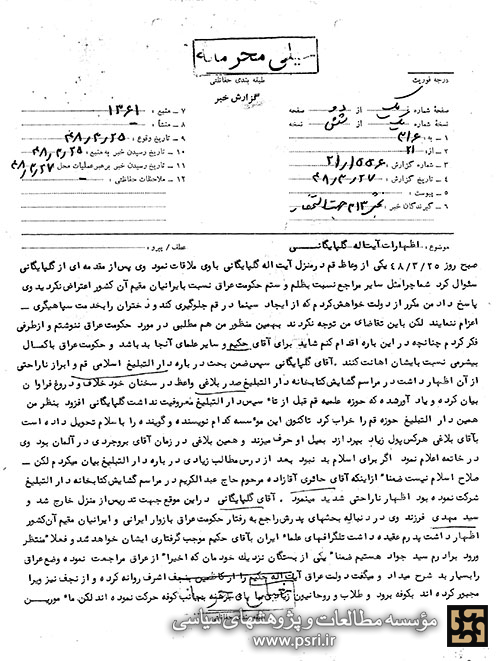 خیلی محرمانه
طبقه بندی حفاظتی
گزارش خبر
درجه فوریت
صفحه شماره یک از دو صفحه
نسخه شماره یک از شش نسخه
۱ - به : ۳۱۶
۲ - از : ۲۱
۳ - شماره گزارش :
۴ - تاریخ گزارش : ۴۸/۳/۲۷
۵ - پیوست :
۶ - گیرندگان خبر :
۷ - منبع : ۱۳۶۱
۸ - منشأ :
۹ - تاریخ وقوع : ۴۸/۳/۲۵
۱۰ - تاریخ رسیدن خبر به منبع : ۴۸/۳/۲۵
۱۱ - تاریخ رسیدن خبر به رهبر عملیات محل ۴۸/۳/۲۷
۱۲ - ملاحظات حفاظتی :
موضوع : اظهارات آیت اله گلپایگانی عطف / پیرو :
صبح روز ۴۸/۳/۲۵ یکی از وعاظ قم در منزل آیت اله گلپایگانی با وی ملاقات نمود وی پس از مقدمه ای از گلپایگانی
سئوال کرد شما چرا مثل سایر مراجع نسبت بظلم و ستم حکومت عراق نسبت بایرانیان مقیم آن کشور اعتراضی نکردید وی
پاسخ داد من مکرر از دولت خواهش کردم که از ایجاد سینما در قم جلوگیری کند و دختران را بخدمت سپاهیگری –
اعزام ننمایند لکن باین تقاضای من توجه نکردند بهمین منظور من هم مطلبی در مورد حکومت عراق ننوشتم و از طرفی
فکر کردم چنانچه در این باره اقدام کنم شاید برای آقای حکیم و سایر علمای آنجا بد باشد و حکومت عراق باکمال
بیشرمی نسبت بایشان اهانت کنند . آقای گلپایگانی سپس ضمن بحث درباره دارالتبلیغ اسلامی قم و ابراز ناراحتی
از آن اظهار داشت در مراسم گشایش کتابخانه دارالتبلیغ صدر بلاغی واعظ در سخنان خود خلاف و دروغ فراوان
بیان کرده و یاد آور شده که حوزه علمیه قم قبل از تأسیس دارالتبلیغ معروفیت نداشت گلپایگانی افزود بنظر من
همین دارالتبلیغ حوزه قم را خراب کرد تاکنون این مؤسسه کدام نویسنده و گوینده را باسلام تحویل داده است
بآقای بلاغی هرکس پول زیاد بپردازد بمیل او حرف میزند و همین بلاغی در زمان آقای بروجردی در آلمان بود وی
در خاتمه اعلام نمود اگر برای اسلام بد نبود بعد از درس مطالب زیادی درباره دارالتبلیغ بیان میکردم لکن –
صلاح اسلام نیست ضمنا" از اینکه آقای حائری آقازاده مرحوم حاج عبدالکریم در مراسم گشایش کتابخانه دارالتبلیغ
شرکت نموده بود اظهار ناراحتی شدید مینمود . آقای گلپایگانی در این موقع جهت تدریس از منزل خارج شد و
سید مهدی فرزند وی در دنباله بحثهای پدرش راجع به رفتار حکومت عراق با زوار ایرانی و ایرانیان مقیم آن کشور
اظهار داشت پدرم عقیده داشت تلگرافهای علماء ایران بآقای حکیم موجب گرفتاری ایشان خواهد شد و فعلا" منتظر
ورود برادرم سید جواد هستیم ضمنا" یکی از بستگان نزدیک خودمان که اخیرا" از عراق مراجعت نموده وضع عراق
را بسیار بد شرح میداد و میگفت دولت عراق آیت اله حکیم را از کاظمین بنجف اشرف روانه کرده و از نجف نیز ویرا
مجبور کرده اند بکوفه برود و طلاب و روحانیون پای برهنه بجانب کوفه حرکت نموده اند لکن مأمورین
خیلی محرمانه
مؤسسه مطالعات و پژوهشهای سیاسی
www.psri.ir